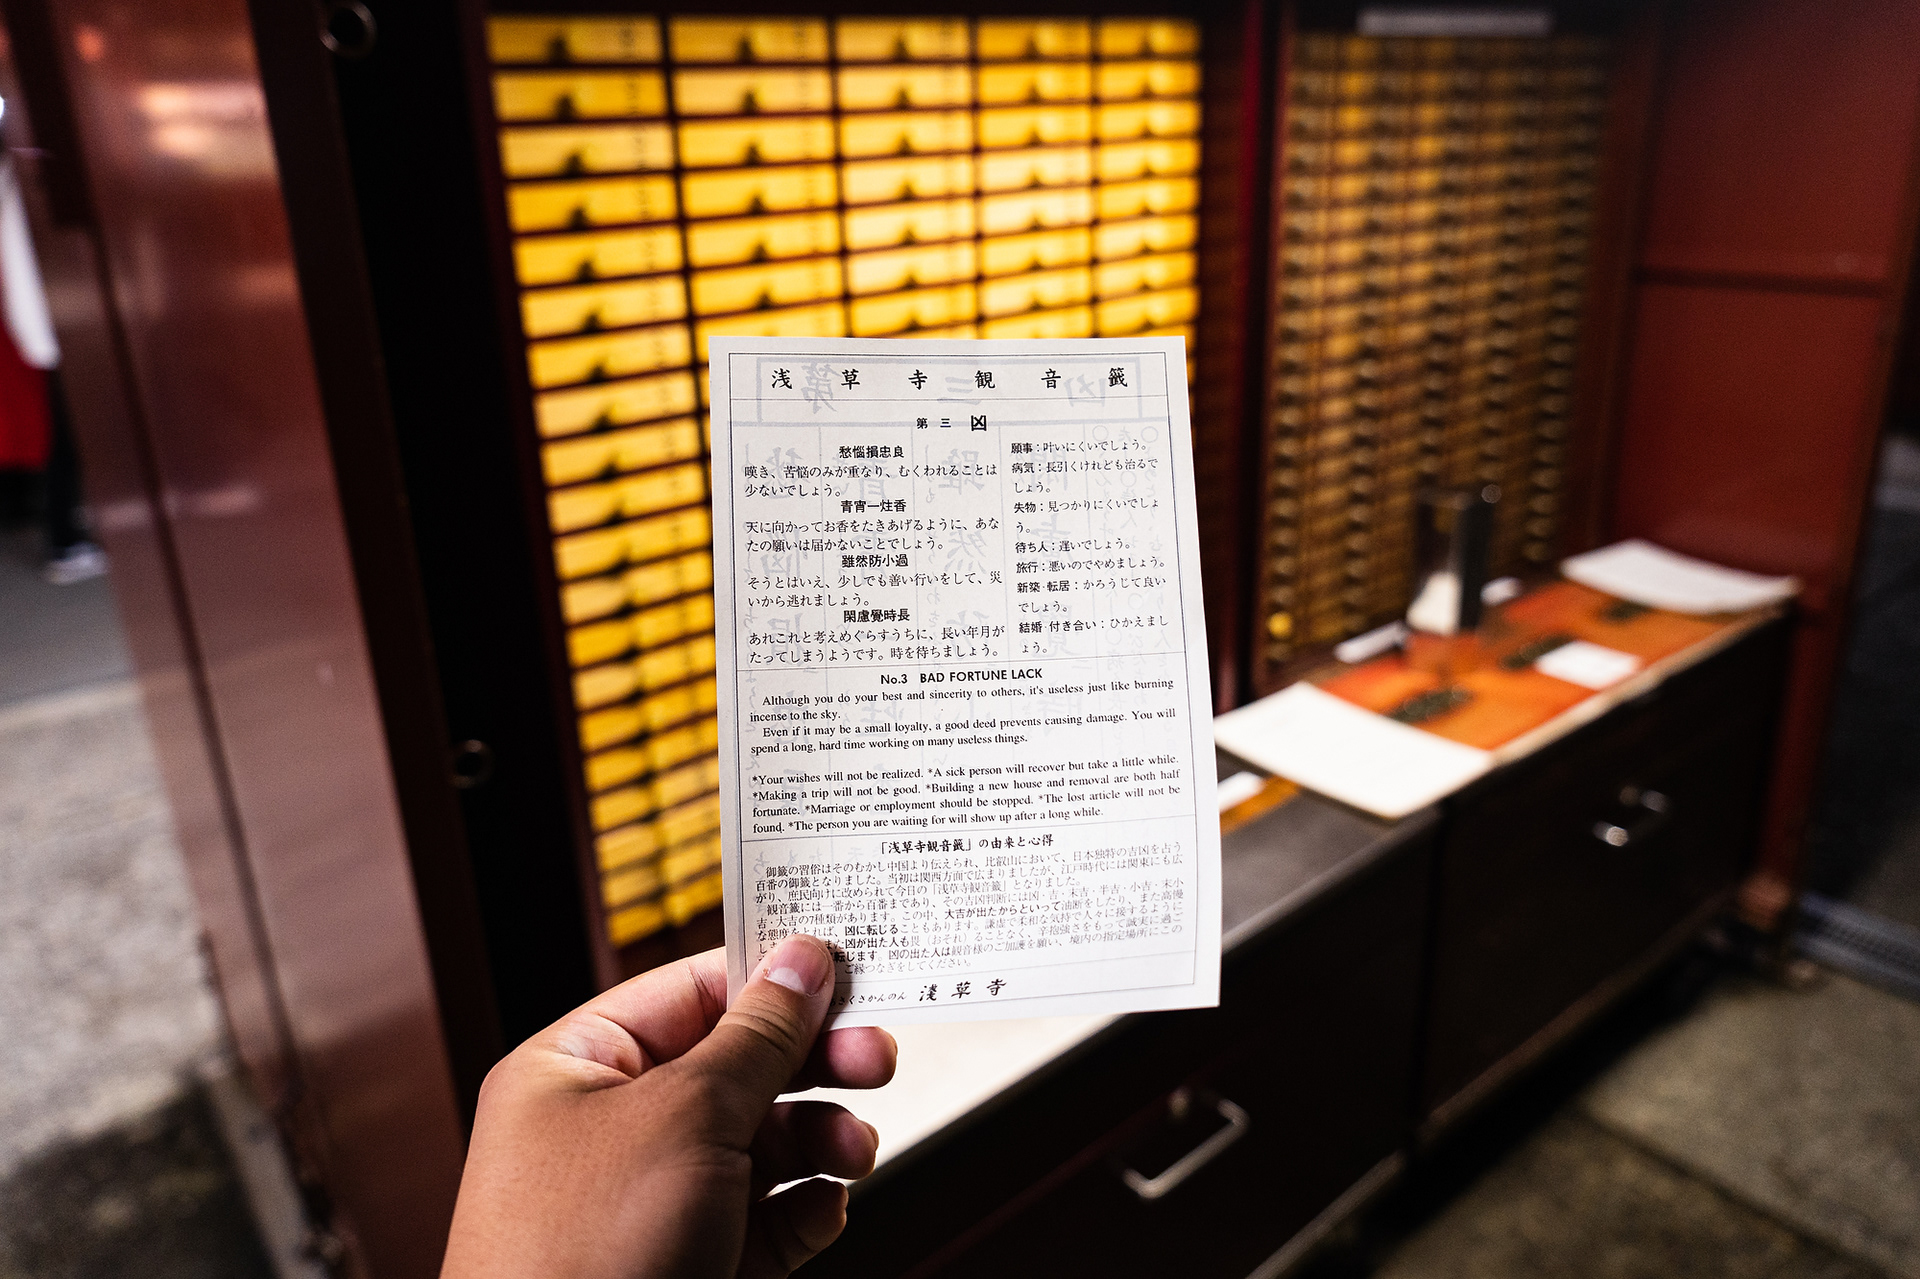 浅草寺観音籤
第三 凶
愁悩損忠良
嘆き、苦悩のみが重なり、むくわれることは
少ないでしょう。
青宵一炷香
天に向かってお香をたきあげるように、あな
たの願いは届かないことでしょう。
雖然防小過
そうとはいえ、少しでも善い行いをして、災
いから逃れましょう。
閑慮覺時長
あれこれと考えめぐらすうちに、長い年月が
たってしまうようです。時を待ちましょう。
願事：叶いにくいでしょう。
病気：長引くけれども治るで
しょう。
失物：見つかりにくいでしょ
う。
待ち人：遅いでしょう。
旅行：悪いのでやめましょう。
新築·転居：かろうじて良い
でしょう。
結婚·付き合い：ひかえまし
ょう。
No.3 BAD FORTUNE LACK
Although you do your best and sincerity to others, it's useless just like burning
incense to the sky.
Even if it may be a small loyalty, a good deed prevents causing damage. You will
spend a long, hard time working on many useless things.
*Your wishes will not be realized. *A sick person will recover but take a little while.
*Making a trip will not be good. *Building a new house and removal are both half
fortunate. *Marriage or employment should be stopped. *The lost article will not be
found. *The person you are waiting for will show up after a long while.
「浅草寺観音籤」の由来と心得
御籤の習俗はそのむかし中国より伝えられ、比叡山において、日本独特の吉凶を占う
百番の御籤となりました。当初は関西方面で広まりましたが、江戸時代には関東にも広
がり、庶民向けに改められて今日の「浅草寺観音籤」となりました。
観音籤には一番から百番まであり、その吉凶判断には凶·吉·末吉·半吉·小吉·末小
吉·大吉の7種類があります。この中、大吉が出たからといって油断をしたり、また高慢
な態度をとれば、凶に転じることもあります。謙虚で柔和な気持で人々に接するように
しま また凶が出た人も畏（おそれ）ることなく、辛抱強さをもって誠実に過ご
転じます。凶の出た人は観音様のご加護を願い、境内の指定場所にこの
ご縁つなぎをしてください。
さくさかんのん 淺草寺